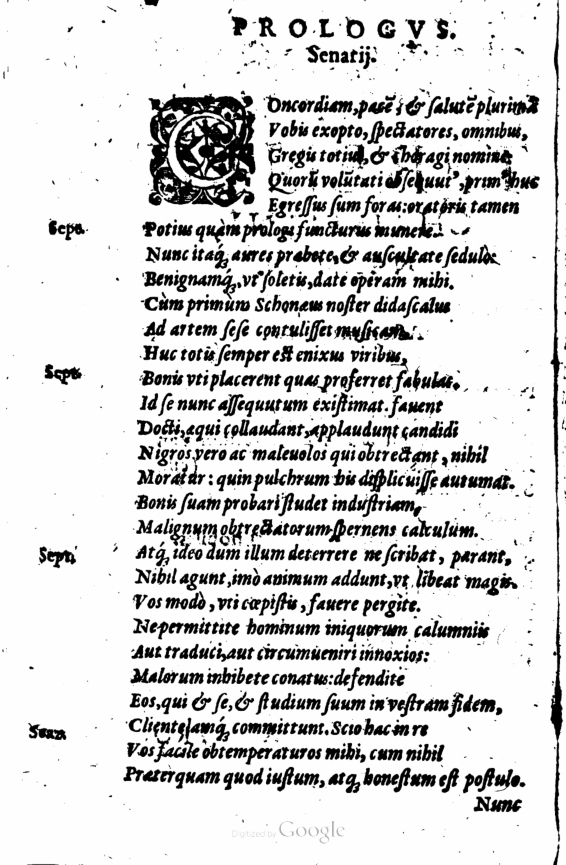 PROLOGVS.
Senarij.
COncordiam, pacē, & salutē plurimā
Vobis exopto, spectatores, omnibus,
Gregis totius, & choragi nomine
Quorū volūtati obsequut', prim' huc
Egressus sum foras: oratoris tamen
Sept. Potius quàm prologi functurus munere.
Nunc itaq; aures præbete, & auscultate sedulò:
Benignamq;, vt soletis, date operam mihi.
Cùm primùm Schonæus noster didascalus
Ad artem sese contulisset musicam:
Huc totis semper est enixus viribus,
Sept. Bonis vti placerent quas proferret fabulas.
Id se nunc assequutum existimat. fauent
Docti, æqui collaudant, applaudunt candidi
Nigros vero ac maleuolos qui obtrectant, nihil
Moratur: quin pulchrum his displicuisse autumat.
Bonis suam probari studet industriam,
Malignum obtrectatorum spernens calculum.
Sept. Atq; ideo dum illum deterrere ne scribat, parant,
Nihil agunt, imò animum addunt, vt libeat magis.
Vos modò, vti cœpistis, fauere pergite.
Ne permittite hominum iniquorum calumniis
Aut traduci, aut circumueniri innoxios:
Malorum inhibete conatus: defendite
Eos, qui & se, & studium suum in vestram fidem,
Clientelamq; committunt. Scio hac in re
Vos facile obtemperaturos mihi, cum nihil
Præterquam quod iustum, atq; honestum est postulo.
Nunc
Digitized by Google